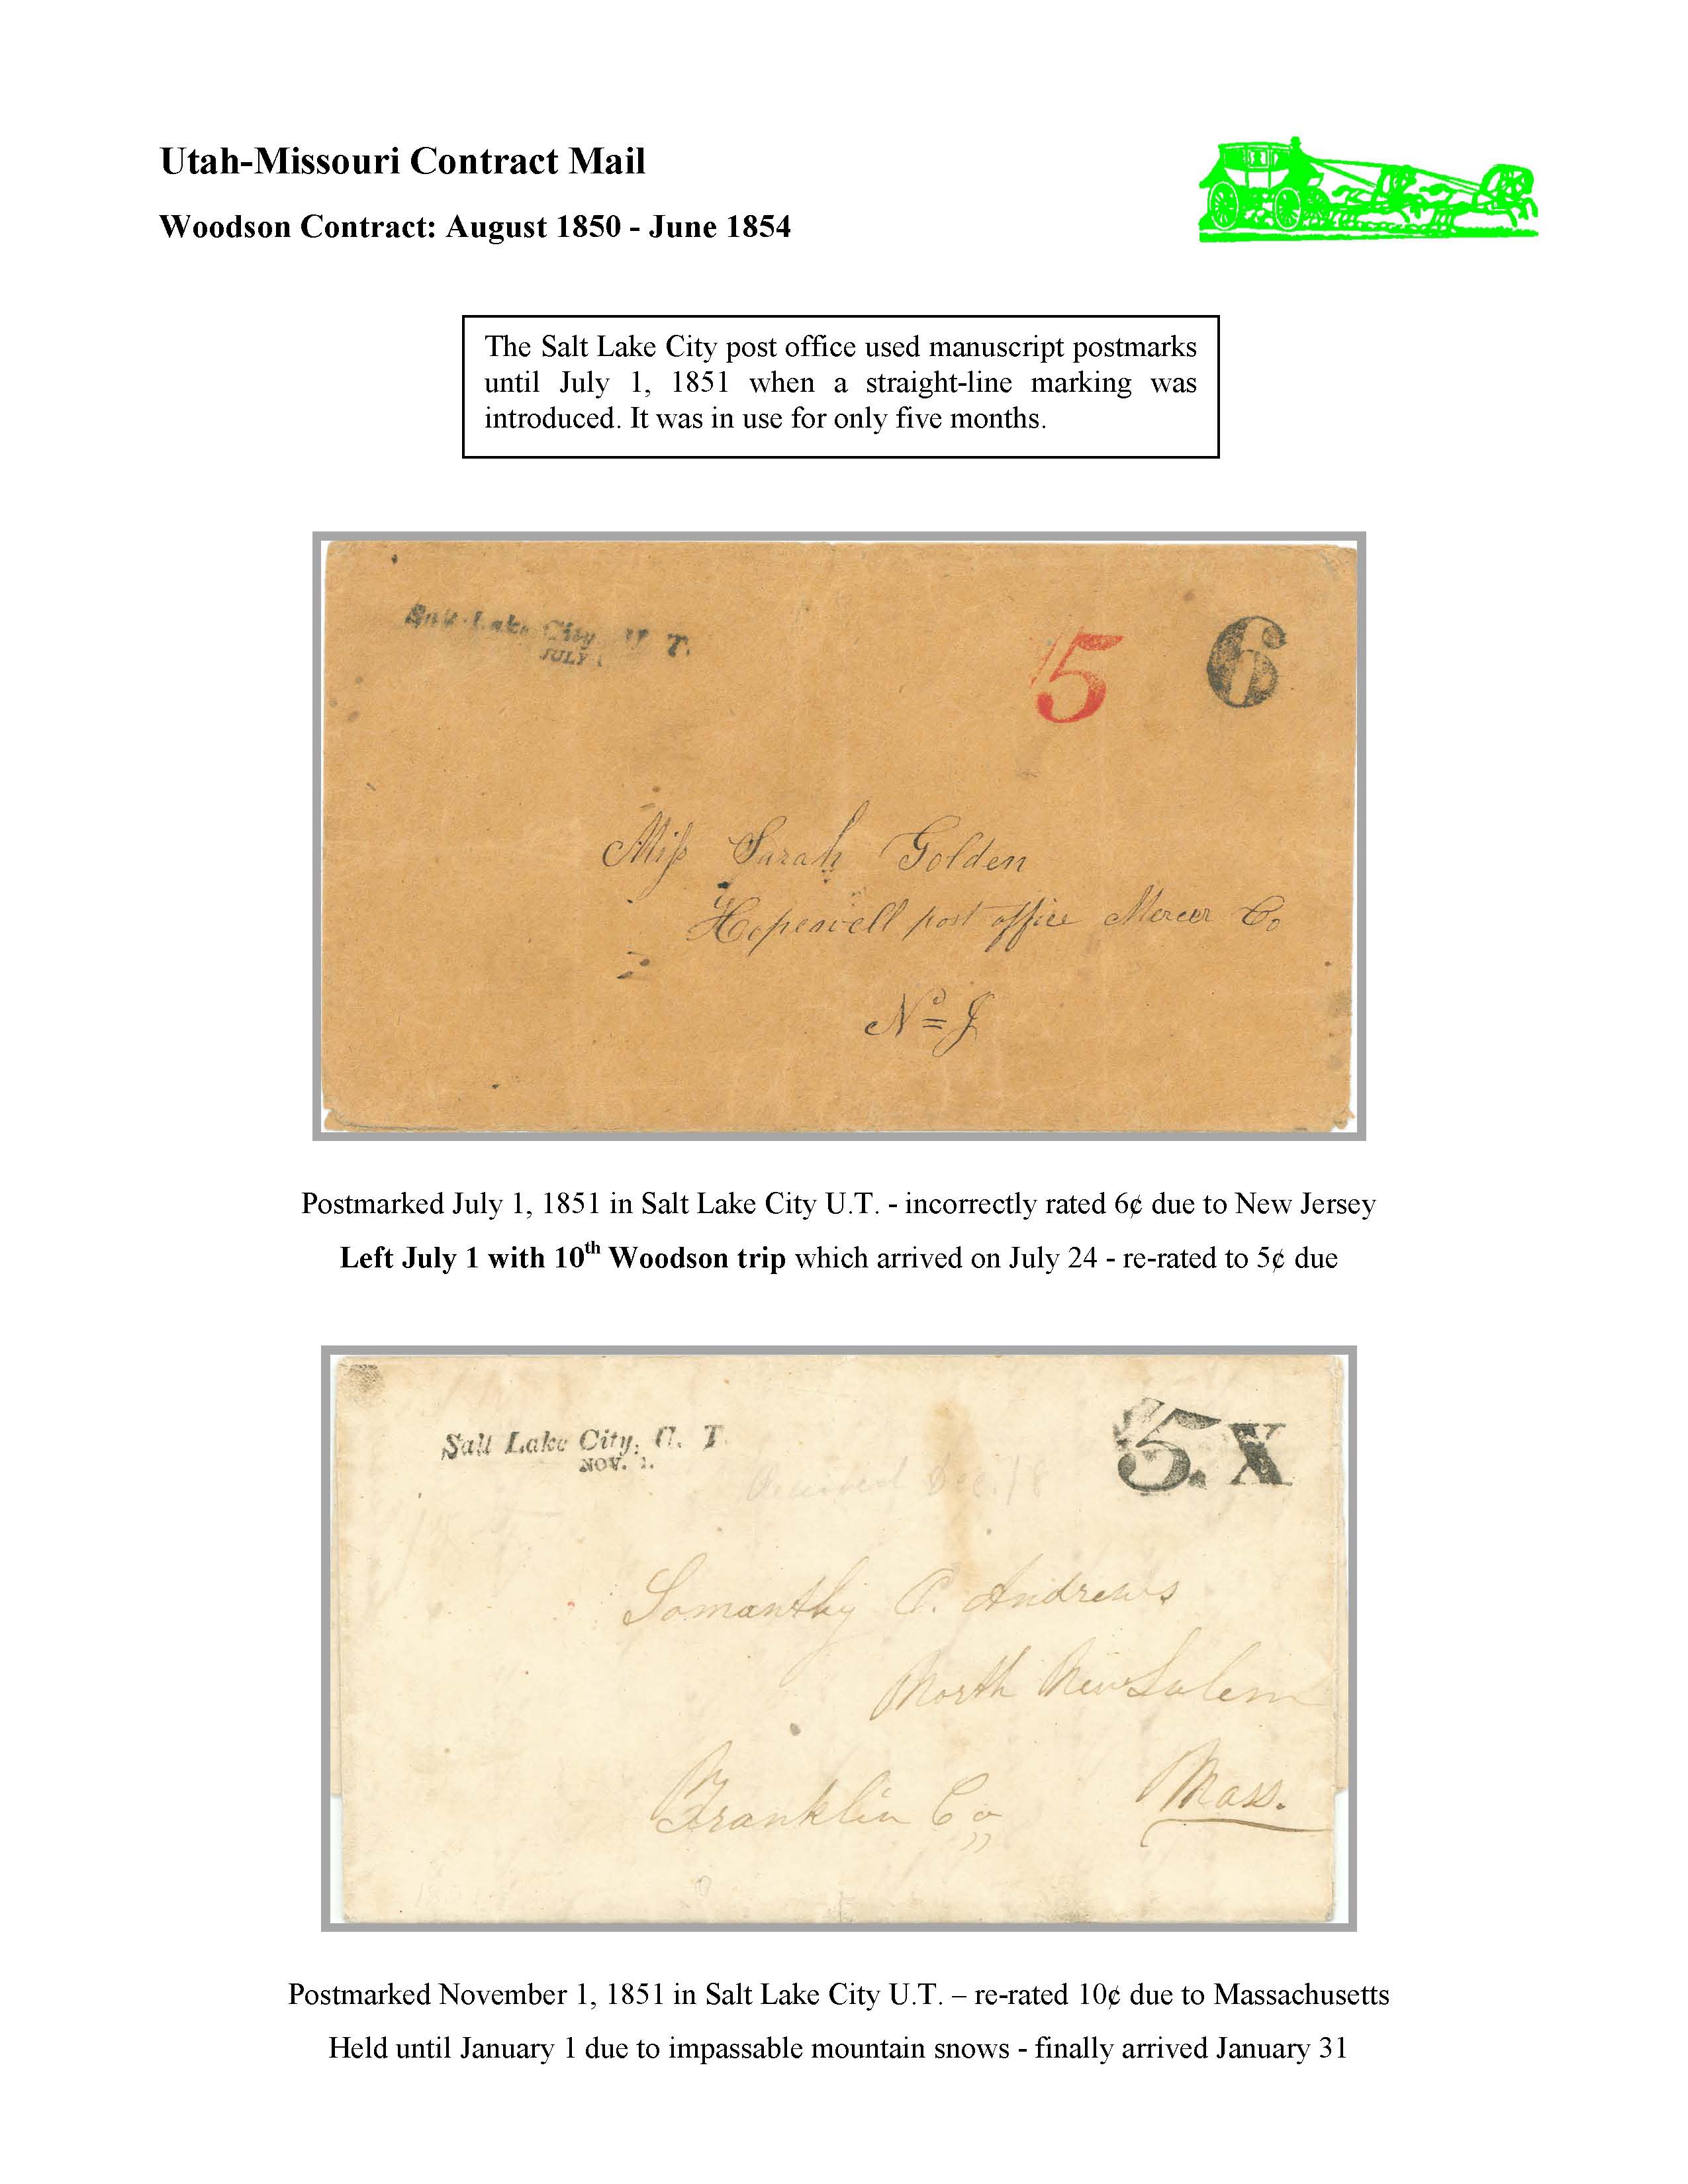 Utah-Missouri Contract Mail
Woodson Contract: August 1850 - June 1854
The Salt Lake City post office used manuscript postmarks
until July 1, 1851 when a straight-line marking was
introduced. It was in use for only five months.
Salt Lake City, U. T.
JULY 1
5 6
Miss Sarah Golden
Hopewell post office Mercer Co
No J
Postmarked July 1, 1851 in Salt Lake City U.T. - incorrectly rated 6¢ due to New Jersey
Left July 1 with 10th Woodson trip which arrived on July 24 - re-rated to 5¢ due
Salt Lake City, U. T.
NOV. 1.
5. X
Received Dec. 18
Somanthy P. Andrews
North New Salem
Franklin Co
Mass.
Postmarked November 1, 1851 in Salt Lake City U.T. – re-rated 10¢ due to Massachusetts
Held until January 1 due to impassable mountain snows - finally arrived January 31